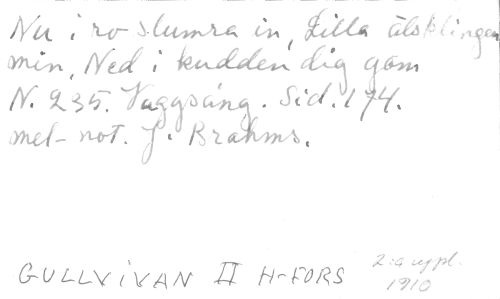 Nu i ro slumra in, Lilla älsklingen
min, Ned i kudden dig göm
N. 235. Vaggsång. Sid. 174.
mel-not. J. Brahms.
GULLVIVAN II H-FORS
2:a uppl.
1910